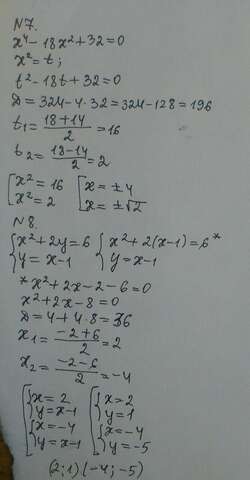 N7.
x⁴ - 18x² + 32 = 0
x² = t;
t² - 18t + 32 = 0
D = 324 - 4·32 = 324 - 128 = 196
t₁ = (18+14)/2 = 16
t₂ = (18-14)/2 = 2
[x² = 16 [x = ±4
[x² = 2 [x = ±√2
N8.
{x² + 2y = 6 {x² + 2(x-1) = 6 *
{y = x-1 {y = x-1
* x² + 2x - 2 - 6 = 0
x² + 2x - 8 = 0
D = 4 + 4·8 = 36
x₁ = (-2+6)/2 = 2
x₂ = (-2-6)/2 = -4
[{x = 2 [{x = 2
[{y = x-1 [{y = 1
[{x = -4 [{x = -4
[{y = x-1 [{y = -5
(2;1) (-4;-5)